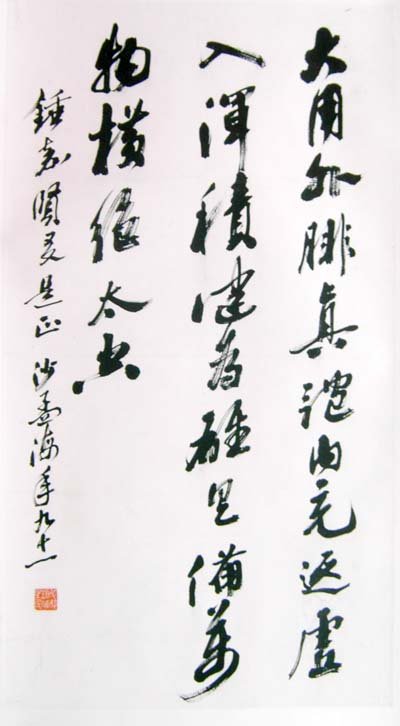 大用外腓真體內充返虛
入渾積健為雄具備萬
物橫絕太空
鍾嘉賢友是正 沙孟海年九十一